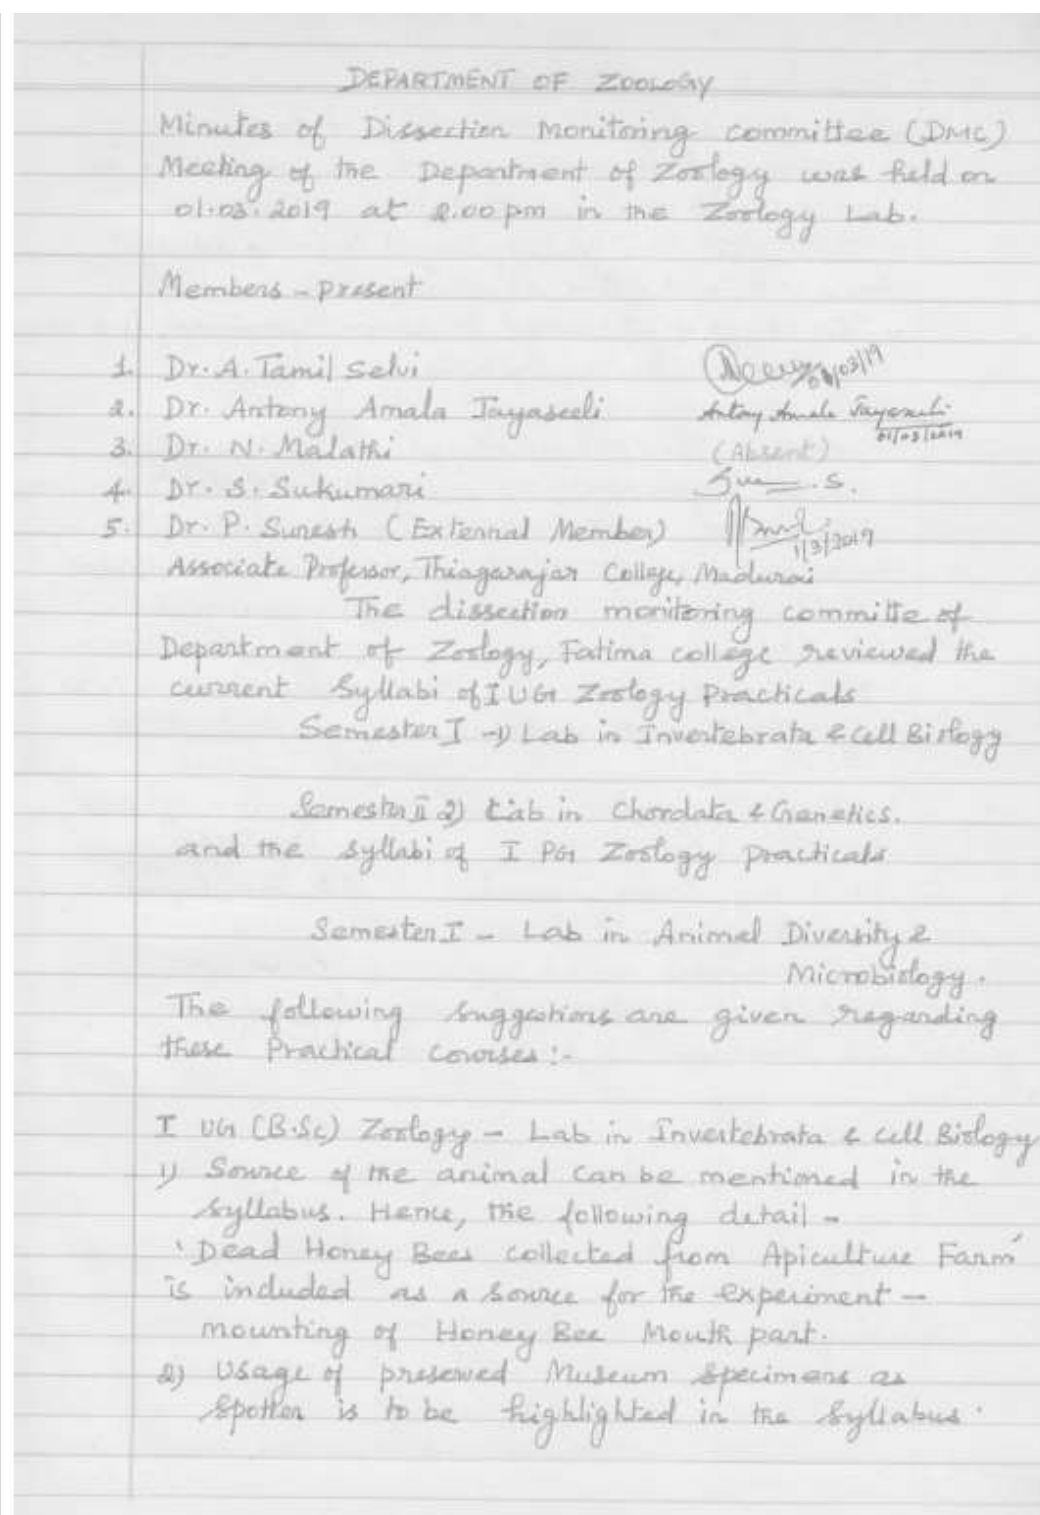 DEPARTMENT OF ZOOLOGY
Minutes of Dissection Monitoring committee (DMC)
Meeting of the Department of Zoology was held on
01.03.2019 at 2.00 pm in the Zoology Lab.
Members - Present
1. Dr. A. Tamil Selvi 01/03/19
2. Dr. Antony Amala Jayaseeli Antony Amala Jayaseeli
01/03/2019
3. Dr. N. Malathi (Absent)
4. Dr. S. Sukumari S.
5. Dr. P. Suresh (External Member) 1/3/2019
Associate Professor, Thiagarajar College, Madurai
The dissection monitoring committe of
Department of Zoology, Fatima college reviewed the
current Syllabi of I UG Zoology Practicals
Semester I -1) Lab in Invertebrata & Cell Biology
Semester II 2) Lab in Chordata & Genetics.
and the syllabi of I PG Zoology practicals
Semester I - Lab in Animal Diversity &
Microbiology.
The following suggestions are given regarding
these Practical courses:-
I UG (B.Sc) Zoology - Lab in Invertebrata & Cell Biology
1) Source of the animal can be mentioned in the
syllabus. Hence, the following detail -
'Dead Honey Bees collected from Apiculture Farm'
is included as a source for the experiment -
mounting of Honey Bee Mouth part.
2) Usage of preserved Museum specimens as
spotter is to be highlighted in the syllabus.